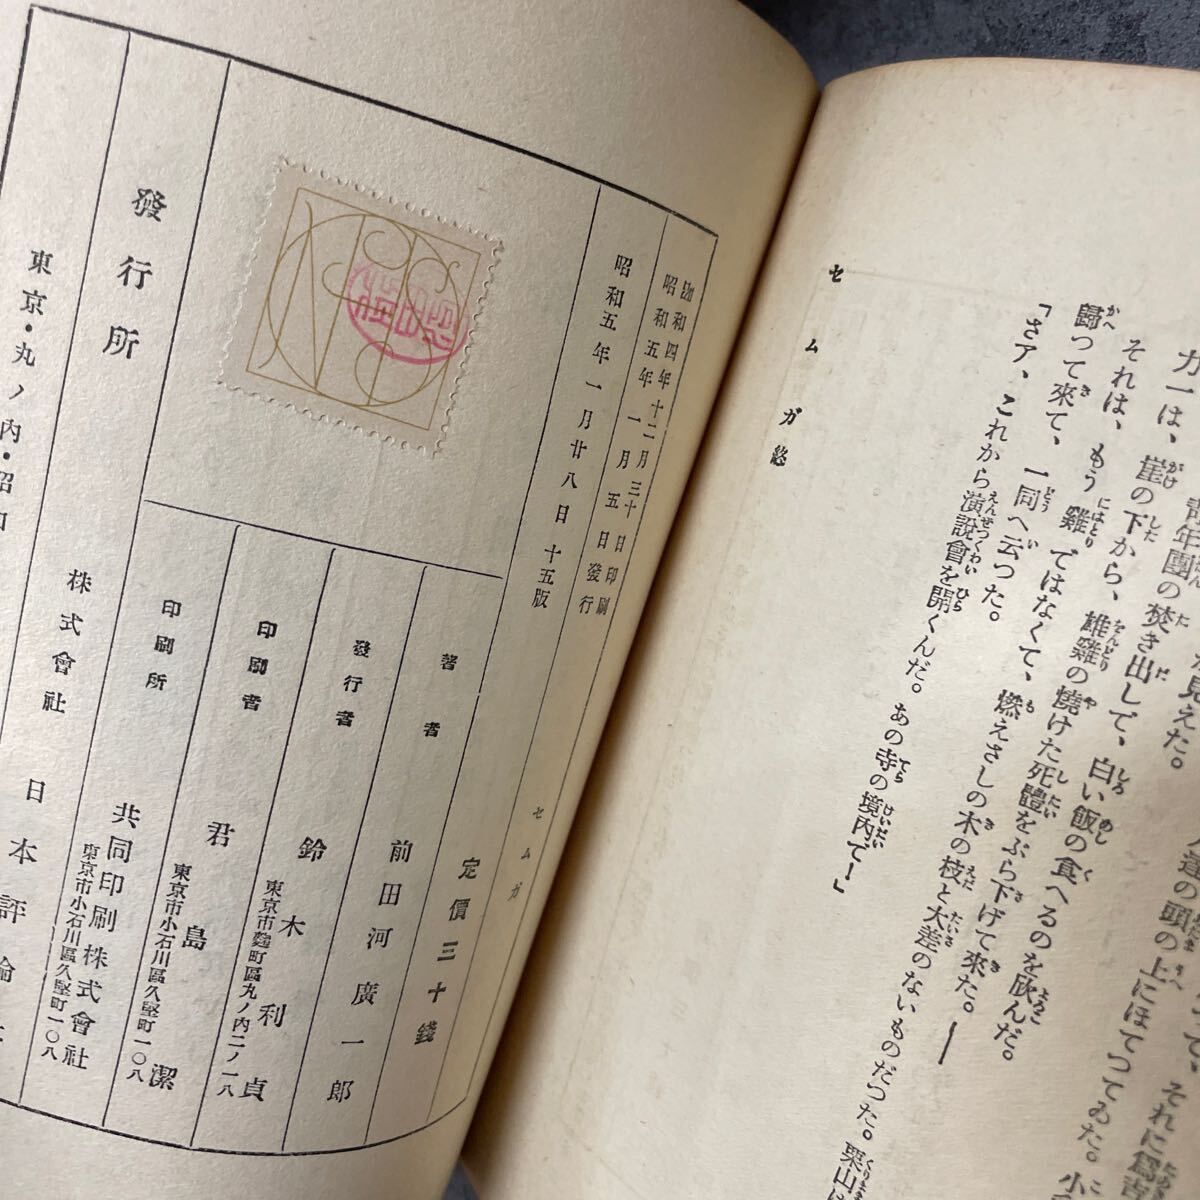 力一は、
それは、もう雞ではなくて、燃えさしの木の枝と大差のないものだつた。栗山は
歸つて來て、一同へ云つた。
「さア、これから演說會を開くんだ。あの寺の境內で！」
崖の下から、雄雞の燒けた死體をぶら下げて來た。――
靑年團の焚き出しで、白い飯の食へるのを欣んだ。
セムガ終
昭和四年十二月三十日印刷
昭和五年一月五日發行
昭和五年一月廿八日十五版
セムガ
定價三十錢
著者 前田河廣一郎
發行者 鈴木利貞
東京市麴町區丸ノ內二ノ一八
印刷者 君島潔
東京市小石川區久堅町一〇八
印刷所 共同印刷株式會社
東京市小石川區久堅町一〇八
發行所
株式會社 日本評論
東京・丸ノ內・昭和